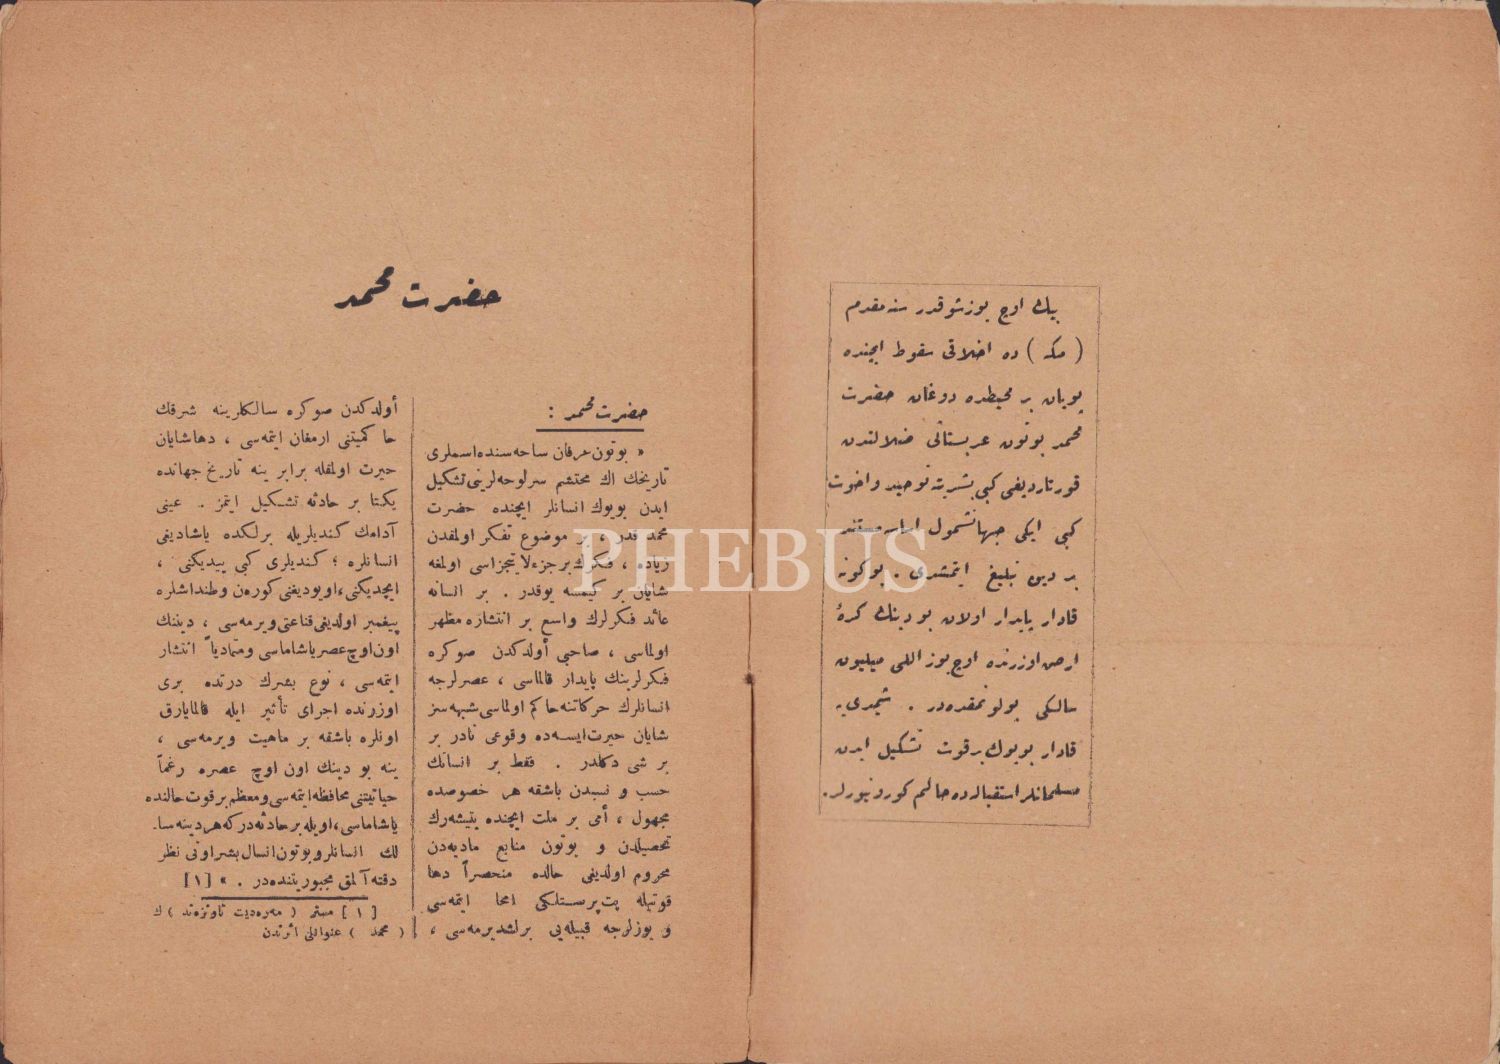 بيك اوچ يوز شو قدر سنه مقدم
( مكه ) ده اخلاقى سقوط ايچنده
پويان بر محيطده دوغان حضرت
محمد بوتون عربستانى ضلالتدن
قورتارديغى كبى بشريته توحيد و اخوت
كبى ايكى جهانشمول اساسه مستند
بر دين تبليغ ايتمشدى . بوكونه
قادار پايدار اولان بو دينك كرۀ
ارض اوزرنده اوچ يوز اللى ميليون
سالكى بولونمقده در . شيمدى يه
قادار بويوك بر قوت تشكيل ايدن
مسلمانلر استقبالده حاكم كورونيورلر.
حضرت محمد
حضرت محمد :
« بوتون عرفان ساحه سنده اسملرى
تاريخك اك محتشم سرلوحه لرينى تشكيل
ايدن بويوك انسانلر ايچنده حضرت
محمد قدر ، بر موضوع تفكر اولمقدن
زياده ، فكرك بر جزء لايتجزاسى اولمغه
شايان بر كيمسه يوقدر . بر انسانه
عائد فكرلرك واسع بر انتشاره مظهر
اولماسى ، صاحبى أولدكدن صوكره
فكرلرينك پايدار قالماسى ، عصرلرجه
انسانلرك حركاتنه حاكم اولماسى شبهه سز
شايان حيرت ايسه ده وقوعى نادر بر
بر شى دكلدر . فقط بر انسانك
حسب و نسبدن باشقه هر خصوصده
مجهول ، أمى بر ملت ايچنده يتيشه رك
تحصيلدن و بوتون منابع ماديه دن
محروم اولديغى حالده منحصراً دها
قوتيله پت پرستلكى امحا ايتمه سى
و يوزلرجه قبيله يى برلشديرمه سى ،
أولدكدن صوكره سالكلرينه شرقك
حاكميتنى ارمغان ايتمه سى ، دها شايان
حيرت اولمقله برابر ينه تاريخ جهانده
يكتا بر حادثه تشكيل ايتمز . عينى
آدامك كنديلريله برلكده ياشاديغى
انسانلره ؛ كنديلرى كبى ييديكنى ،
ايچديكنى ، اويوديغنى كورن وطنداشلره
پيغمبر اولديغى قناعتى ويرمه سى ، ديننك
اون اوچ عصر ياشاماسى و متمادياً انتشار
ايتمه سى ، نوع بشرك درتده برى
اوزرنده اجراى تأثير ايله قالمايارق
اونلره باشقه بر ماهيت ويرمه سى ،
ينه بو دينك اون اوچ عصره رغماً
حياتيتنى محافظه ايتمه سى و معظم بر قوت حالنده
ياشاماسى ، اويله بر حادثه در كه هر دينه سا-
لك انسانلر و بوتون انسال بشر اونى نظر
دقته آلمق مجبوريتنده در . » [١]
[ ١ ] مستر ( مه ره ديت تاونزه ند ) ك
( محمد ) عنوانلى اثرندن
PHEBUS